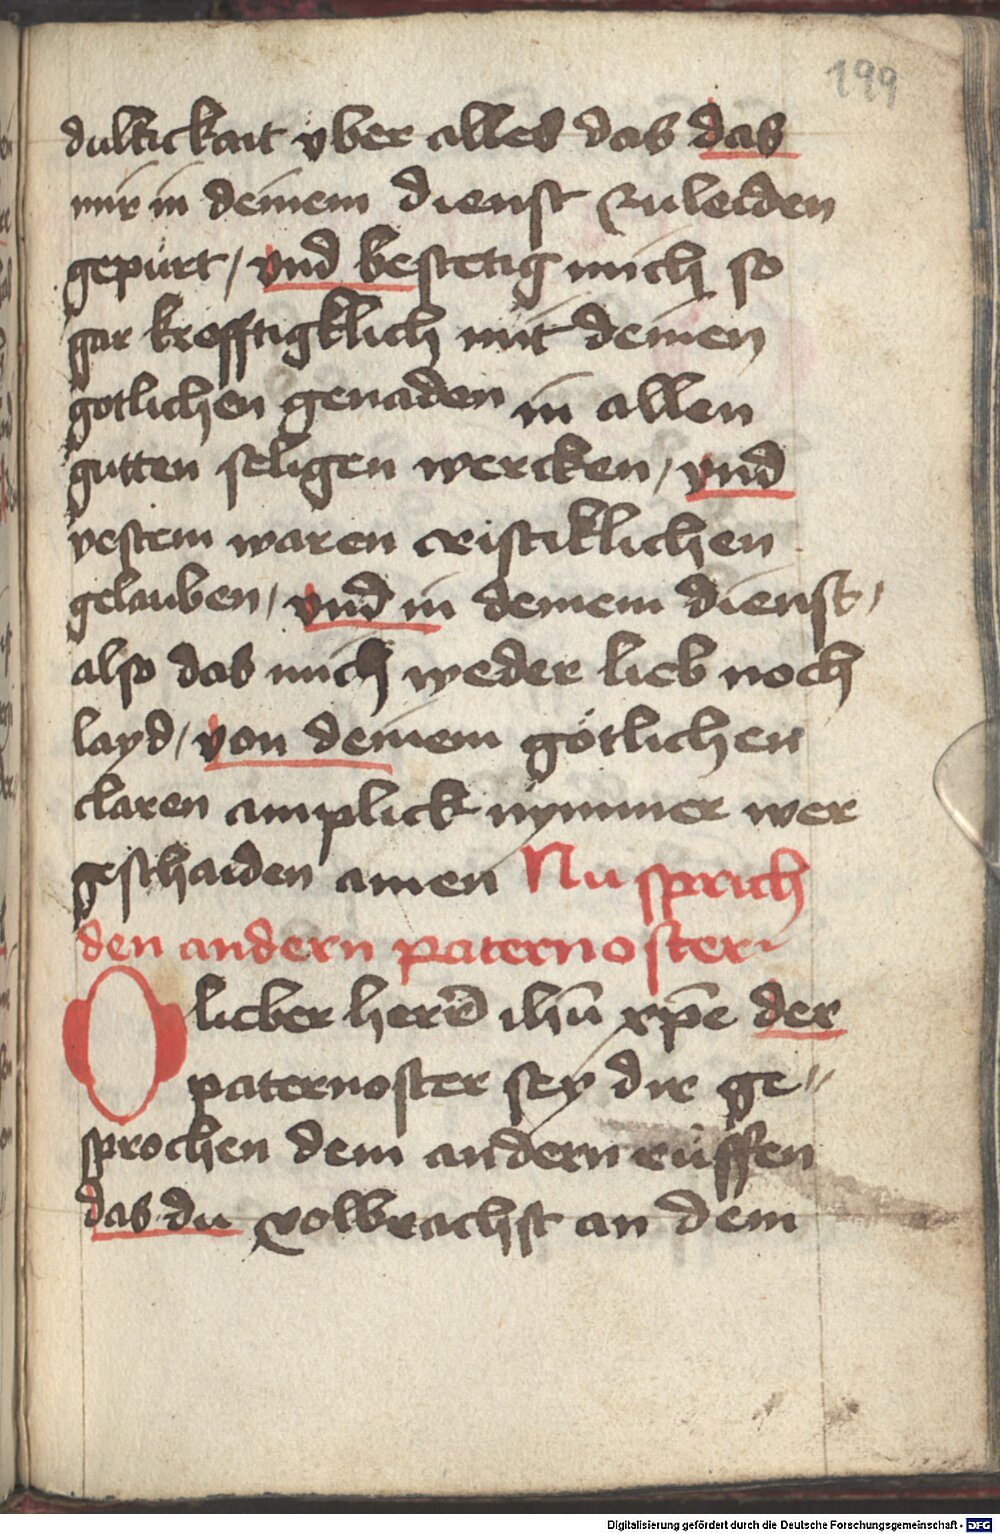 199
dultickait vber alles das das
mir in deinem dienst zuleiden
gepürt / vnd bestetig mich so
gar krefftigklich mit deinen
gotlichen genaden in allen
gutten seligen wercken / vnd
vestem waren cristiklichen
gelauben / vnd in deinem dienst /
also das mich weder lieb noch
layd / von deinem götlichen
claren amplick nymmer wer
geschaiden amen Nu sprich
den andern paternoster
O lieber herre ihū xp̄e der
paternoster sey dir ge〃
sprochen dem andern rüffen
das du volbrachst an dem
Digitalisierung gefördert durch die Deutsche Forschungsgemeinschaft - DFG